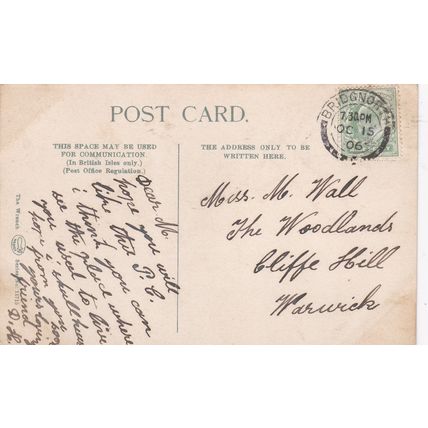 POST CARD.
THIS SPACE MAY BE USED
FOR COMMUNICATION.
(In British Isles only.)
(Post Office Regulation.)
THE ADDRESS ONLY TO BE
WRITTEN HERE.
BRIDGNORTH
7.30PM
OC 15
06
Dear M.
hope you will
like this P.C.
i think you can
see the place where
we used to live
i shall
you
hope from you
yours
Miss. M. Wall
The Woodlands
Cliffe Hill
Warwick
The Wrench